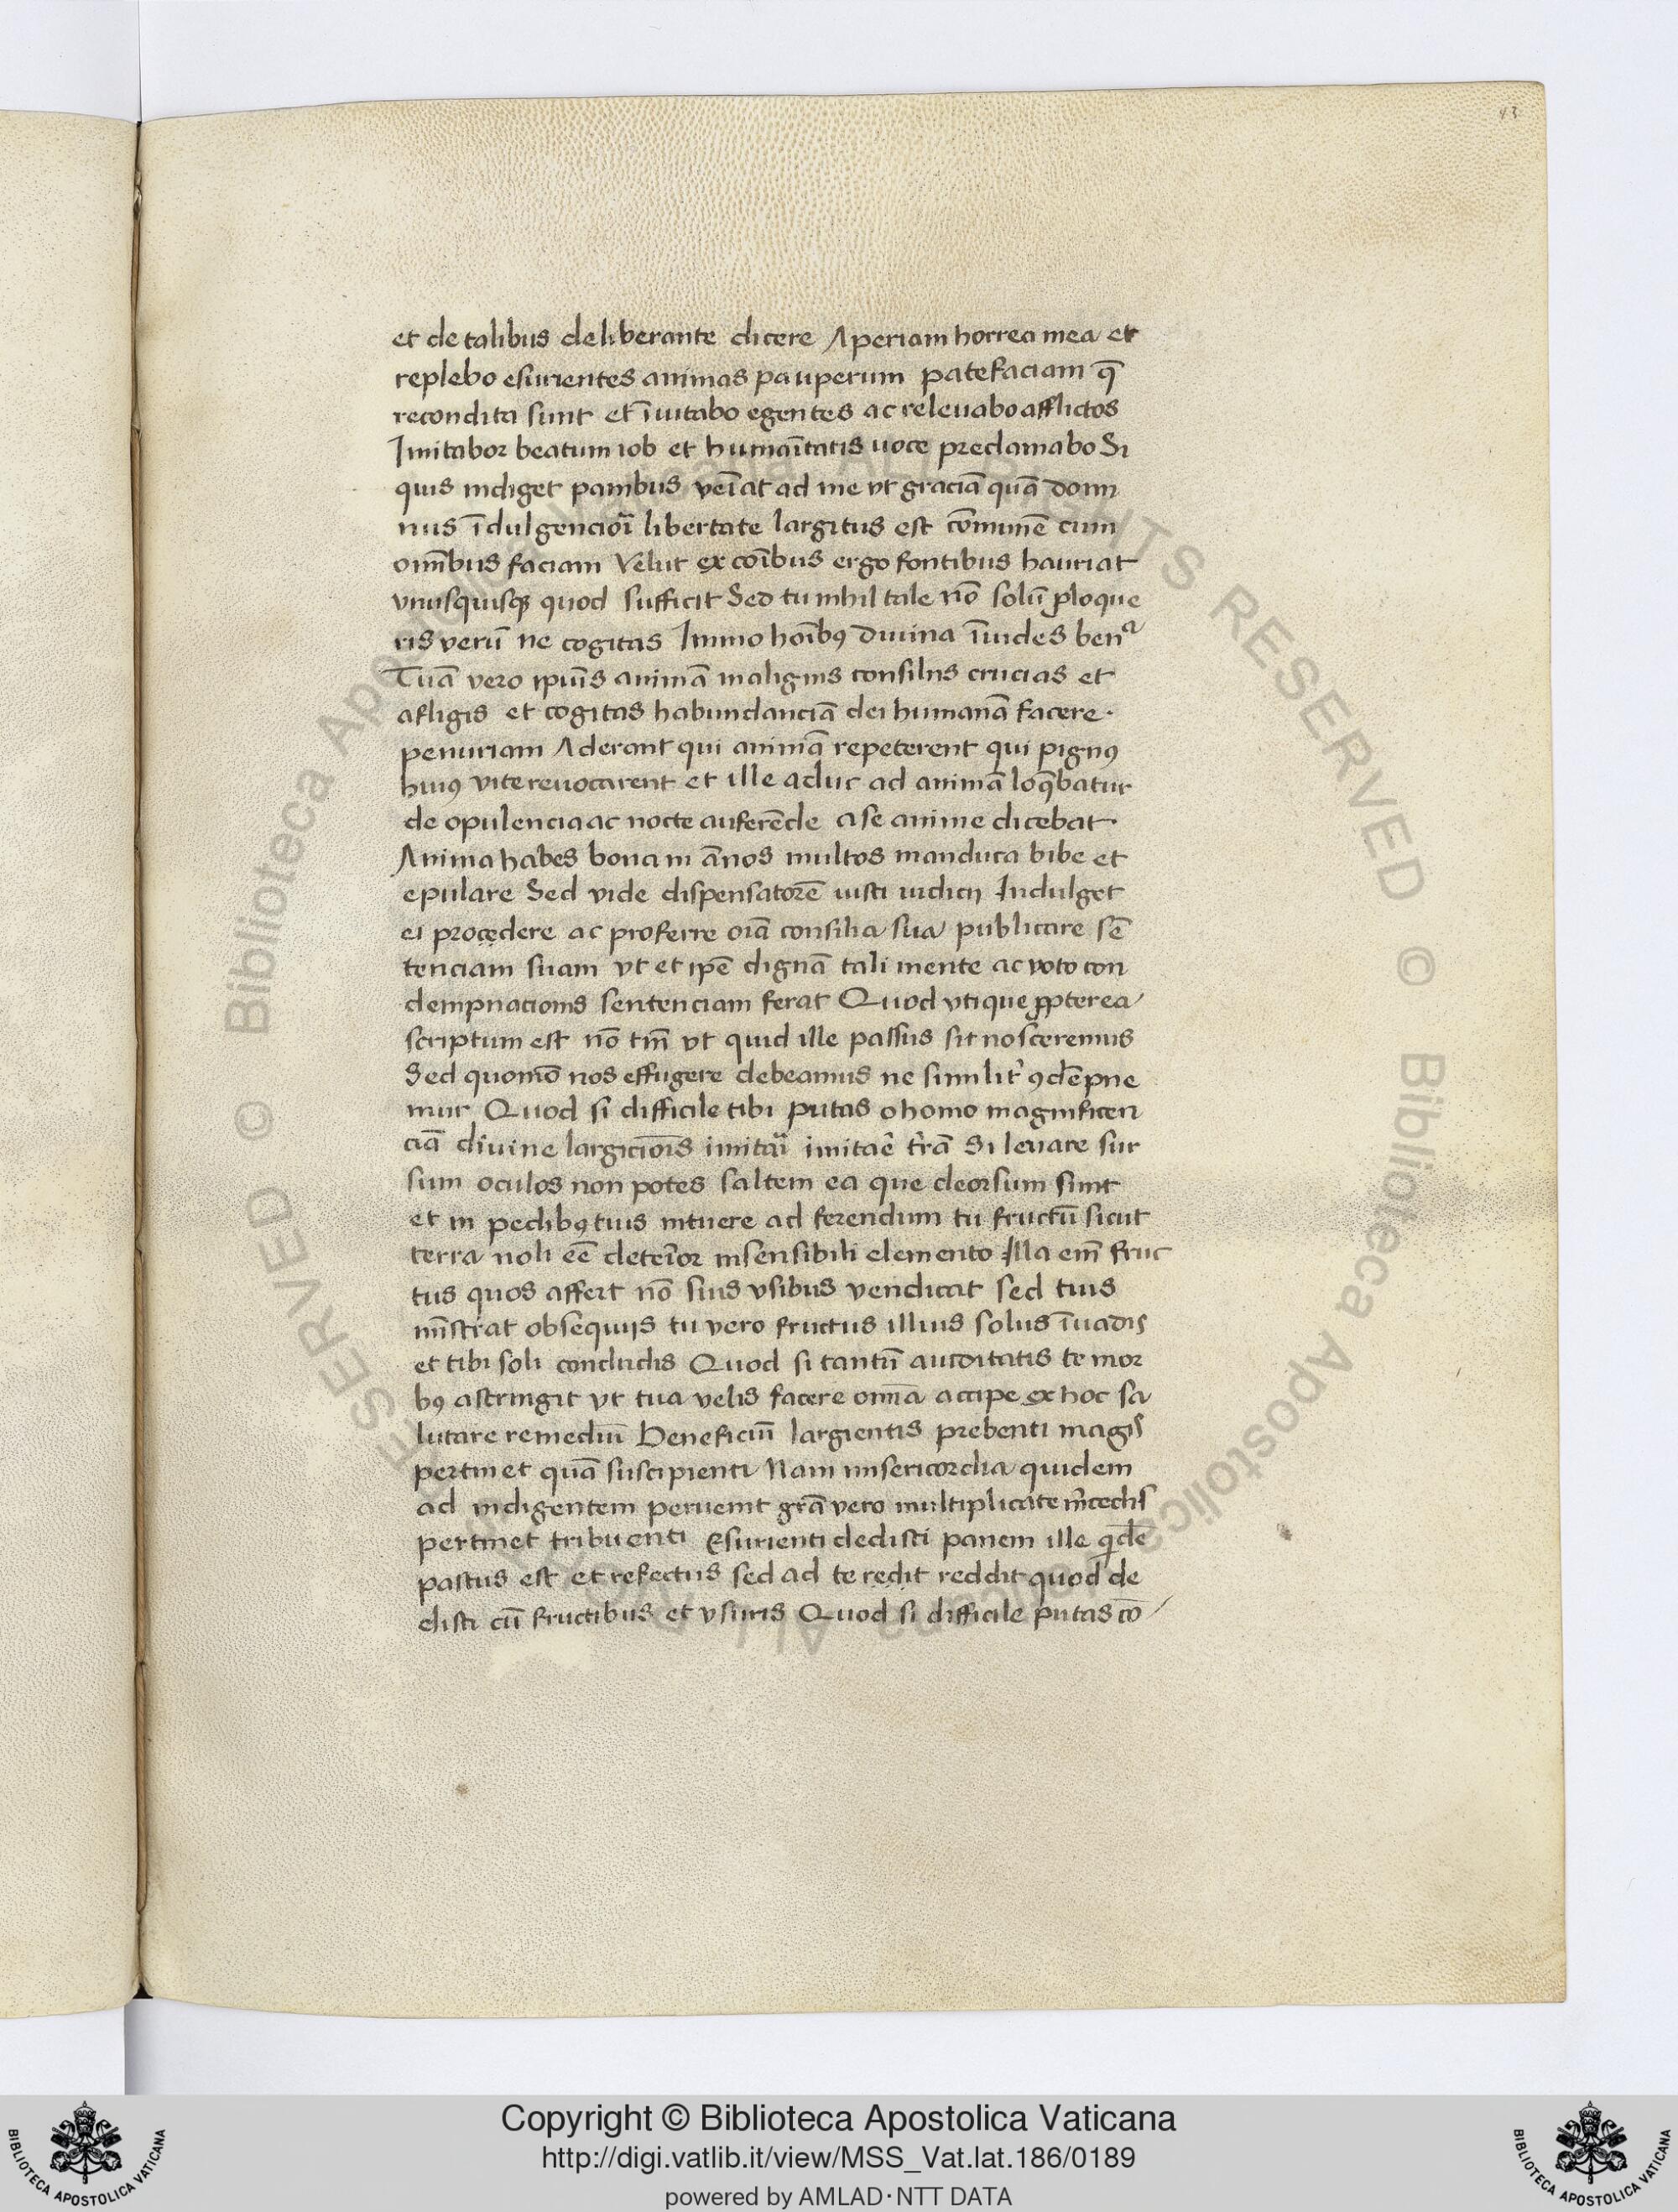 43
et de talibus deliberante dicere Aperiam horrea mea et
replebo esurientes animas pauperum patefaciam q̄
recondita sunt et īuitabo egentes ac releuabo afflictos
Imitabor beatum iob et humaītatis uoce preclamabo Si
quis indiget panibus veīat ad me vt graciā quā domi
nus īdulgencioī libertate largitus est cōmunē cum
omībus faciam Velut ex coībus ergo fontibus hauriat
vnusquisqꝫ quod sufficit Sed tu nihil tale nō solū ꝓloque
ris verū ne cogitas Immo hoībꝯ diuina īuides benᵃ
Tuā vero ipīus animā malignis consilijs crucias et
afligis et cogitas habundanciā dei humanā facere·
penuriam Aderant qui animā repeterent qui pignꝯ
huiꝯ vite reuocarent et ille aduc ad animā loq̄batur
de opulencia ac nocte auferēde a se anime dicebat·
Anima habes bona in ānos multos manduca bibe et
epulare Sed vide dispensatorē iusti iudicij Indulget
ei procedere ac proferre oīa consilia sua publicare sē
tenciam suam vt et ipē dignā tali mente ac voto con
dempnacionis sentenciam ferat Quod vtique ꝓpterea
scriptum est nō tm̄ vt quid ille passus sit nosceremus
Sed quomō nos effugere debeamus ne similit᷑ ꝯdēpne
mur Quod si difficile tibi putas o homo magnificen
ciā diuine largicioīs imitaī imitaē t᷑rā Si leuare sur
sum oculos non potes saltem ea que deorsum sunt
et in pedibꝯ tuis intuere ad ferendum tu fructū sicut
terra noli eē deteīor insensibili elemento Illa em̄ fruc
tus quos affert nō suis vsibus vendicat sed tuis
mīstrat obsequijs tu vero fructus illius solus īuadis
et tibi soli concludis Quod si tantū auiditatis te mor
bꝯ astringit vt tua velis facere omīa accipe ex hoc sa
lutare remediū Beneficiū largientis prebenti magis
pertinet quā suscipienti Nam misericordia quidem
ad indigentem peruenit grā vero multiplicate m᷑cedis
pertinet tribuenti Esurienti dedisti panem ille qͥdē
pastus est et refectus sed ad te redit reddit quod de
disti cū fructibus et vsuris Quod si difficile putas cō
© Biblioteca Apostolica Vaticana ALL RIGHTS RESERVED
Copyright © Biblioteca Apostolica Vaticana
http://digi.vatlib.it/view/MSS_Vat.lat.186/0189
powered by AMLAD·NTT DATA
BIBLIOTECA APOSTOLICA VATICANA
BIBLIOTECA APOSTOLICA VATICANA